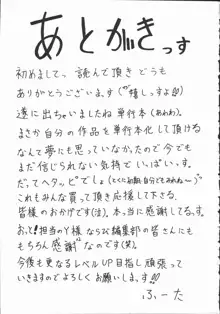 あとがきっす
初めましてっ 読んで頂き どうも
ありがとうございます（嬉しっすよ）
遂に出ちゃいましたね単行本（あわわ）。
まさか自分の作品を単行本化して頂ける
なんて夢にも思っていなかったので今でも
まだ信じられない気持でいっぱいす。
だってヘタッピでしょ（とくに初期 自分でもみれね〜）
これもみんな買って頂き応援して下さる
皆様のおかげです(ほ)。本っ当に感謝してるっす。
おっと！担当のY様ならび編集部の皆さんにも
もちろん感謝なのです(笑)。
今後も更なるレベルUP目指し頑張って
いきますのでよろしくお願いします!!
ふーた